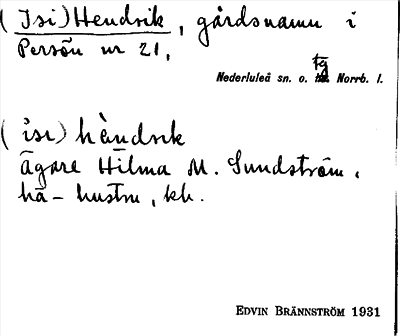 (Isi) Hendrik, gårdsnamn i
Persön nr 21,
tg
Nederluleå sn. o. Norrb. l.
(isi) hèndrik
Ägare Hilma M. Sundström,
hä - hustru, kh.
EDVIN BRÄNNSTRÖM 1931